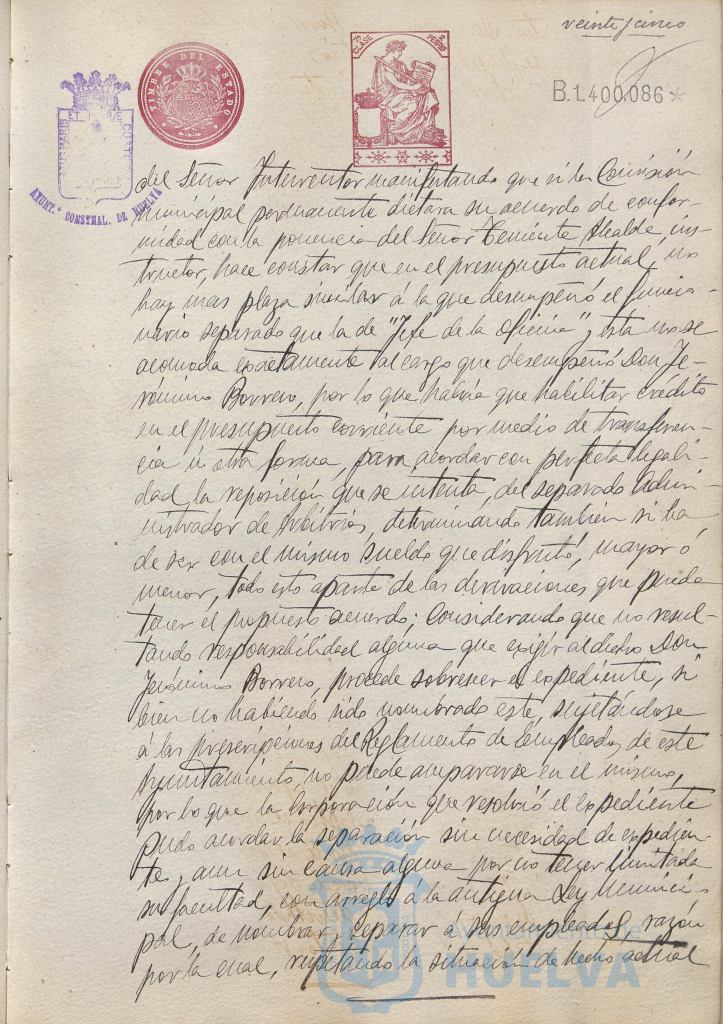 veinte y cinco
7ª CLASE
2 PESETAS
TIMBRE DEL ESTADO
B.1.400.086*
AYUNT.º CONSTNAL. DE HUELVA
del Señor Interventor manifestando que si la Comisión
municipal permanente dictara su acuerdo de confor-
midad con la ponencia del Señor Teniente Alcalde, ins-
tructor, hace constar que en el presupuesto actual, no
hay mas plaza similar á la que desempeñó el funcio-
nario separado que la de "Jefe de la oficina", esta no se
acomoda exactamente al cargo que desempeñó Don Je-
rónimo Borrero, por lo que habria que habilitar crédito
en el presupuesto corriente por medio de transferen-
cia ú otra forma, para acordar con perfecta legali-
dad la reposición que se intenta, del separado Admi-
nistrador de Arbitrios, determinando también si ha
de ser con el mismo sueldo que disfrutó, mayor ó
menor, todo esto aparte de las derivaciones que pueda
tener el propuesto acuerdo; Considerando que no resul-
tando responsabilidad alguna que exigir al dicho Don
Jerónimo Borrero, procede sobreseer el expediente, si
bien no habiendo sido nombrado este, sujetándose
á las prescripciones del Reglamento de Empleados de este
Ayuntamiento, no puede ampararse en el mismo,
por lo que la Corporación que resolvió el expediente
pudo acordar la separación sin necesidad de expedien-
te, y aun sin causa alguna por no tener limitada
su facultad, con arreglo á la antigua Ley Munici-
pal, de nombrar y separar á sus empleados, razón
por la cual, respetando la situación de hecho actual
Ayuntamiento de
HUELVA